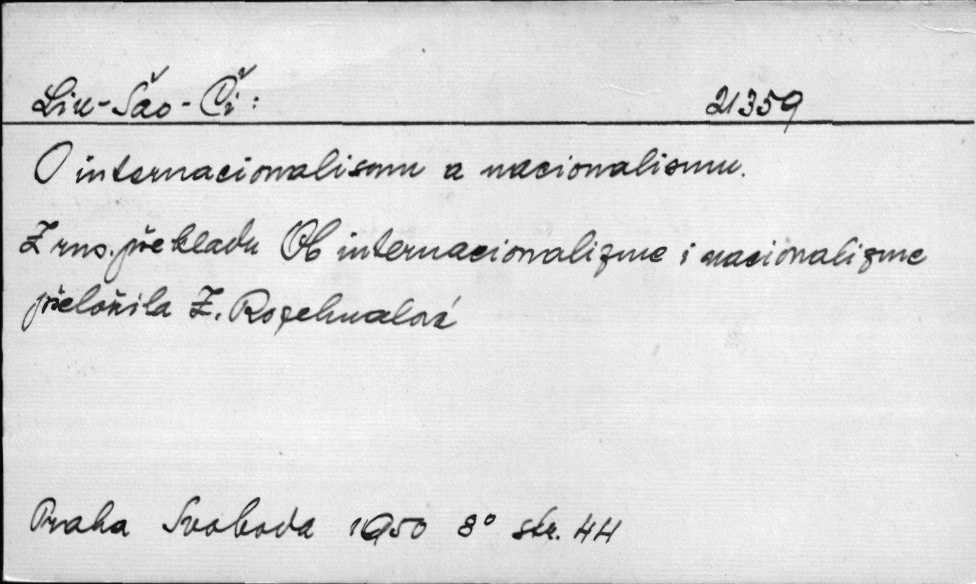 Liu-Šao-Či: 21359
O internacionalismu a nacionalismu.
Z rus. překladu Ob internacionalizme i nacionalizme
přeložila Z. Rozehnalová
Praha Svoboda 1950 8° str. 44